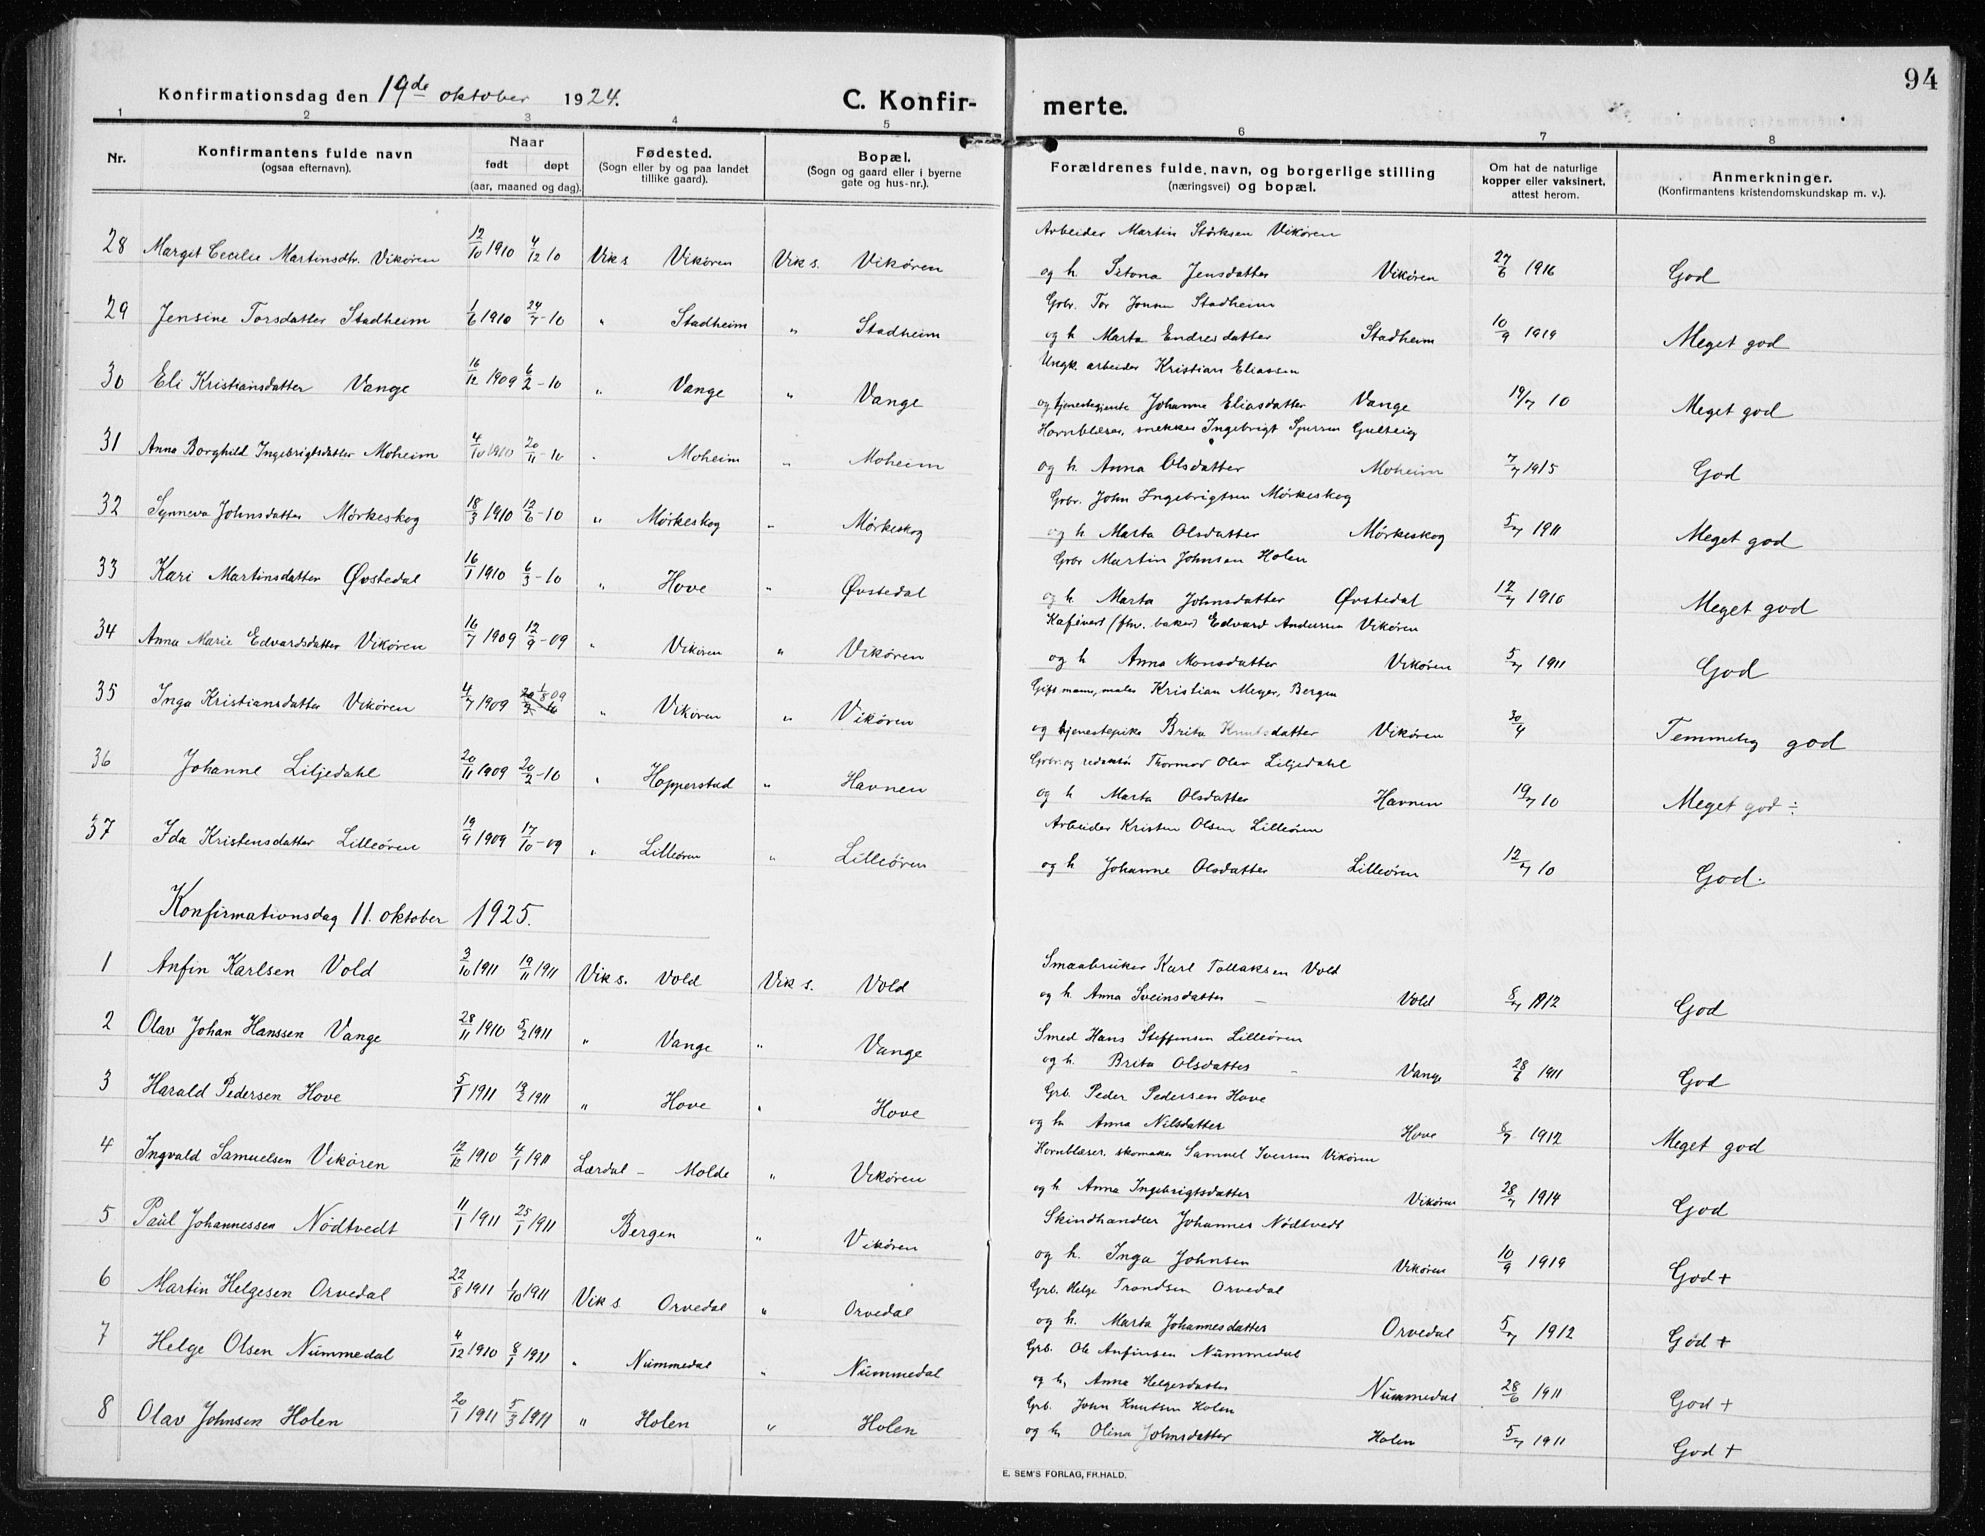 94
Konfirmationsdag den 19de oktober 1924.
C. Konfirmerte.
1 2 3 4 5 6 7 8
Nr.
Konfirmantens fulde navn
(ogsaa efternavn).
Naar
født døpt
(aar, maaned og dag).
Fødested.
(Sogn eller by og paa landet
tillike gaard).
Bopæl.
(Sogn og gaard eller i byerne
gate og hus-nr.).
Forældrenes fulde navn, og borgerlige stilling
(næringsvei) og bopæl.
Om hat de naturlige
kopper eller vaksinert,
attest herom.
Anmerkninger.
(Konfirmantens kristendomskundskap m. v.).
Arbeider Martin Størksen Vikøren
28 Margit Cecilie Martinsdtr. Vikøren 12/10 1910 4/12 10 Viks Vikøren Viks. Vikøren og h. Jensdatter Vikøren 27/6 1916 God
Gbr. Tor Jonsen Stadheim
29 Jensine Torsdatter Stadheim 1/6 1910 24/7-10 " Stadheim " Stadheim og h Marta Endresdatter Stadheim 10/9 1919 Meget god
Ungk. arbeider Kristian Eliassen
30 Eli Kristiansdatter Vange 16/12 1909 6/2-10 " Vange " Vange og tjenestejente Johanne Eliasdatter Vange 19/7 10 Meget god
Hornblæser, snekker Ingebrigt
31 Anna Borghild Ingebrigtsdatter Moheim 4/10 1910 20/11-10 " Moheim " Moheim og h. Anna Olsdatter Moheim 7/7 1915 God
Gbr. John Ingebrigtsen Mørkeskog
32 Synneva Johnsdatter Mørkeskog 18/3 1910 12/6-10 " Mørkeskog " Mørkeskog og h Marta Olsdatter Mørkeskog 5/7 1911 Meget god
Gbr Martin Johnsen Holen
33 Kari Martinsdatter Øvstedal 16/1 1910 6/3-10 " Hove " Øvstedal og h. Marta Johnsdatter Øvstedal 12/7 1910 Meget god
Kafévert (fhv. baker) Edvard Andersen Vikøren
34 Anna Marie Edvardsdatter Vikøren 16/7 1909 12/9-09 " Vikøren " Vikøren og h Anna Monsdatter Vikøren 5/7 1911 God
Gift mann, maler Kristian Meyer, Bergen
35 Inga Kristiansdatter Vikøren 4/7 1909 1/8 09 " Vikøren " Vikøren og tjenestepike Brita Knutsdatter Vikøren 30/4 Temmelig god
Gbr. og redaktør Thormod Olav Liljedahl
36 Johanne Liljedahl 20/11 1909 20/2-10 " Hopperstad " Havnen og h Marta Olsdatter Havnen 19/7 10 Meget god ÷
Arbeider Kristen Olsen Lilleøren
37 Ida Kristensdatter Lilleøren 19/9 1909 17/10-09 " Lilleøren " Lilleøren og h Johanne Olsdatter Lilleøren 12/7 10 God.
Konfirmationsdag 11. oktober 1925.
Smaabruker Karl Tollaksen Vold
1 Anfin Karlsen Vold 3/10 1911 19/11 1911 Viks. Vold Viks. Vold og h. Anna Sveinsdatter – Vold 8/7 1912 God
Smed Hans Steffensen Lilleøren
2 Olav Johan Hanssen Vange 28/11 1910 5/2 1911 " Vange " Vange og h. Brita Olsdatter – Vange 28/6 1911 God
Grb. Peder Pedersen Hove
3 Harald Pedersen Hove 5/1 1911 19/2 1911 " Hove " Hove og h. Anna Nilsdatter Hove 8/7 1912 Meget god
Hornblæser, skomaker Samuel Iversen Vikøren
4 Ingvald Samuelsen Vikøren 12/12 1910 4/1 1911 Lærdal – Molde " Vikøren og h. Anna Ingebrigtsdatter Vikøren 28/7 1914 God
Skindhandler Johannes Nødtvedt
5 Paul Johannessen Nødtvedt 11/1 1911 25/1 1911 Bergen " Vikøren og h. Inga Johnsen Vikøren 10/9 1919 God +
Grb. Helge Trondsen Orvedal
6 Martin Helgesen Orvedal 22/8 1911 1/10 1911 Viks Orvedal " Orvedal og h. Marta Johannesdatter Orvedal 5/7 1912 God +
Grb. Ole Anfinsen Nummedal
7 Helge Olsen Nummedal 4/12 1910 8/1 1911 " Nummedal " Nummedal og h, Anna Helgesdatter Nummedal 28/6 1911 God +
Grb. John Knutsen Holen
8 Olav Johnsen Holen 20/1 1911 5/3 1911 " Holen " Holen og h. Olina Johnsdatter Holen 5/7 1911 God +
E. SEM'S FORLAG, FR.HALD.